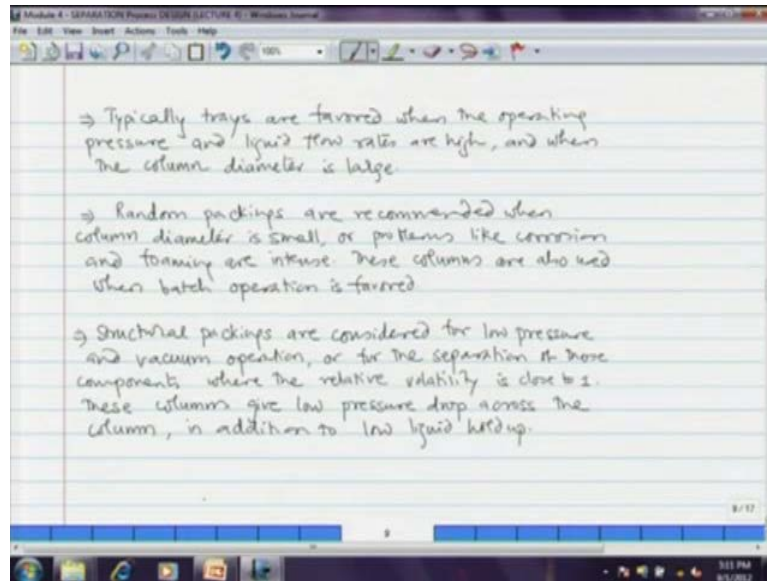 Module 4 - SEPARATION Process DESIGN (LECTURE 4) - Windows Journal
File Edit View Insert Actions Tools Help
100%
⇒ Typically trays are favored when the operating
pressure and liquid flow rates are high, and when
the column diameter is large.
⇒ Random packings are recommended when
column diameter is small, or problems like corrosion
and foaming are intense. These columns are also used
when batch operation is favored
⇒ Structural packings are considered for low pressure
and vacuum operation, or for the separation of those
components where the relative volatility is close to 1.
These columns give low pressure drop across the
column, in addition to low liquid holdup.
9/17
9
5:15 PM